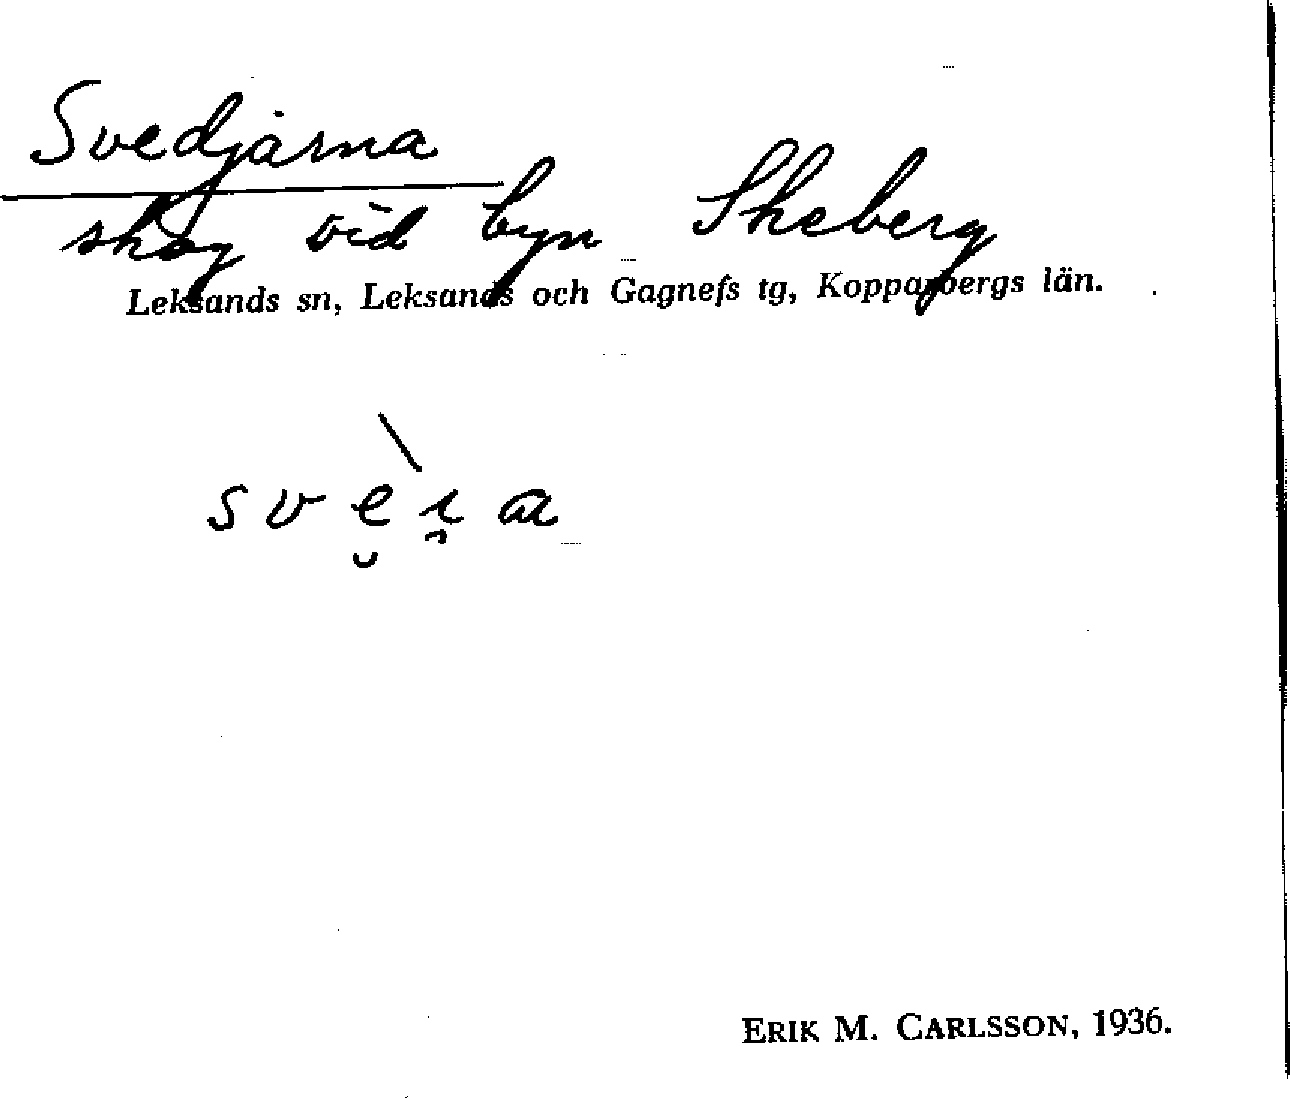 Svedjarna
skog vid byn Skeberg
Leksands sn, Leksands och Gagnefs tg, Kopparbergs län.
s v è̮ ı̯ a
ERIK M. CARLSSON, 1936.